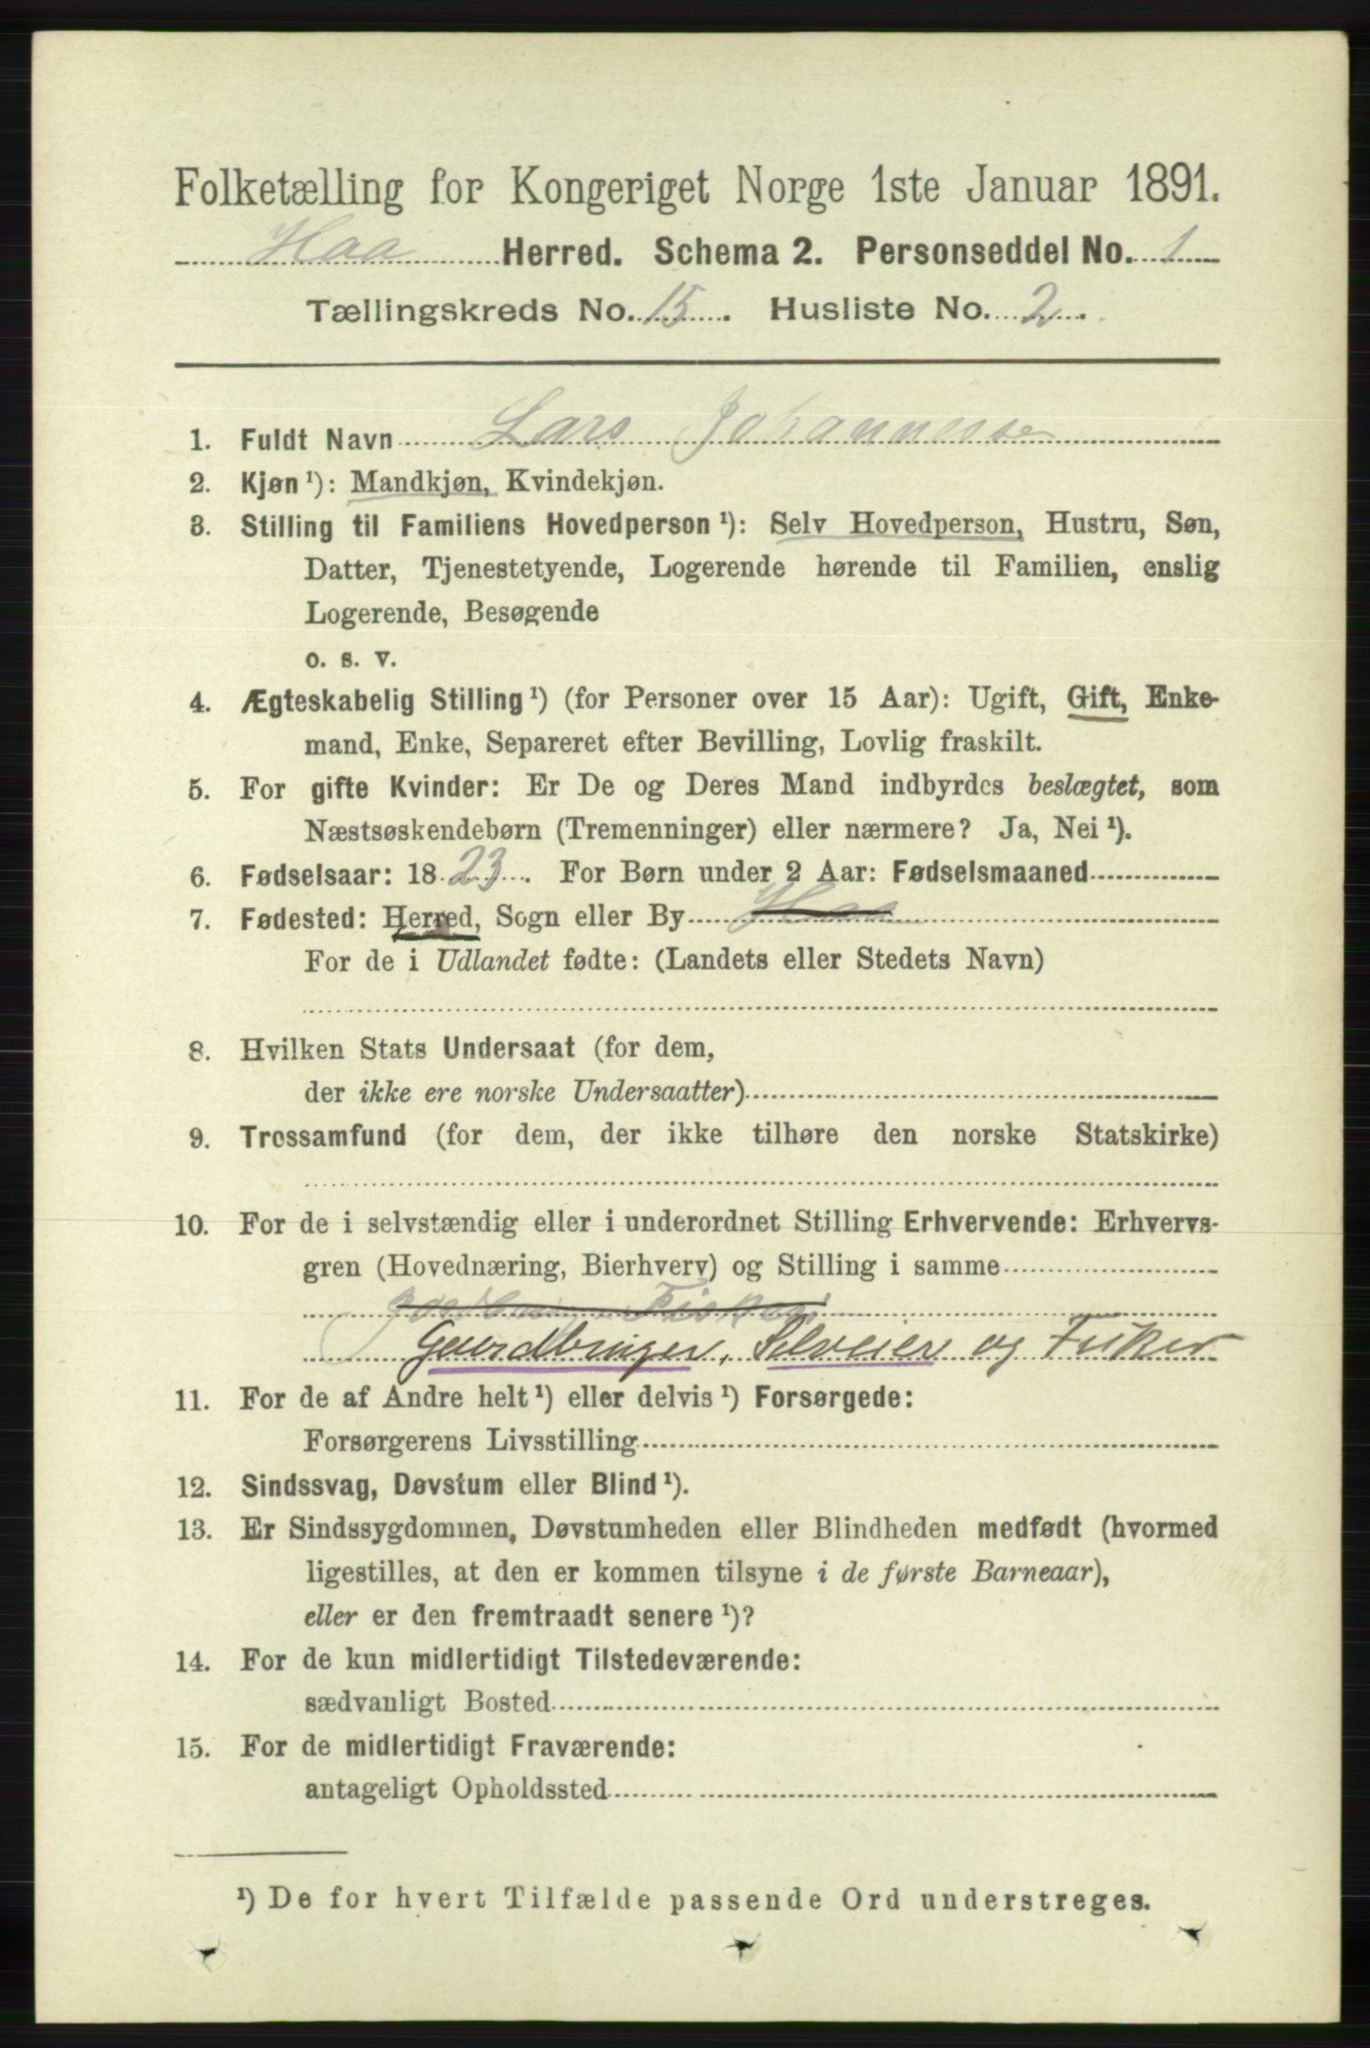 Folketælling for Kongeriget Norge 1ste Januar 1891.
Haa Herred. Schema 2. Personseddel No. 1
Tællingskreds No. 15. Husliste No. 2.
1. Fuldt Navn Lars Johannesse
2. Kjøn ¹): Mandkjøn, Kvindekjøn.
3. Stilling til Familiens Hovedperson ¹): Selv Hovedperson, Hustru, Søn,
Datter, Tjenestetyende, Logerende hørende til Familien, enslig
Logerende, Besøgende
o. s. v.
4. Ægteskabelig Stilling ¹) (for Personer over 15 Aar): Ugift, Gift, Enke-
mand, Enke, Separeret efter Bevilling, Lovlig fraskilt.
5. For gifte Kvinder: Er De og Deres Mand indbyrdes beslægtet, som
Næstsøskendebørn (Tremenninger) eller nærmere? Ja, Nei ¹).
6. Fødselsaar: 1823. For Børn under 2 Aar: Fødselsmaaned
7. Fødested: Herred, Sogn eller By Haa
For de i Udlandet fødte: (Landets eller Stedets Navn)
8. Hvilken Stats Undersaat (for dem,
der ikke ere norske Undersaatter)
9. Trossamfund (for dem, der ikke tilhøre den norske Statskirke)
10. For de i selvstændig eller i underordnet Stilling Erhvervende: Erhvervs-
gren (Hovednæring, Bierhverv) og Stilling i samme
Fisker
Gaardbruger, Selveier og Fisker
11. For de af Andre helt ¹) eller delvis ¹) Forsørgede:
Forsørgerens Livsstilling
12. Sindssvag, Døvstum eller Blind ¹).
13. Er Sindssygdommen, Døvstumheden eller Blindheden medfødt (hvormed
ligestilles, at den er kommen tilsyne i de første Barneaar),
eller er den fremtraadt senere ¹)?
14. For de kun midlertidigt Tilstedeværende:
sædvanligt Bosted
15. For de midlertidigt Fraværende:
antageligt Opholdssted
¹) De for hvert Tilfælde passende Ord understreges.